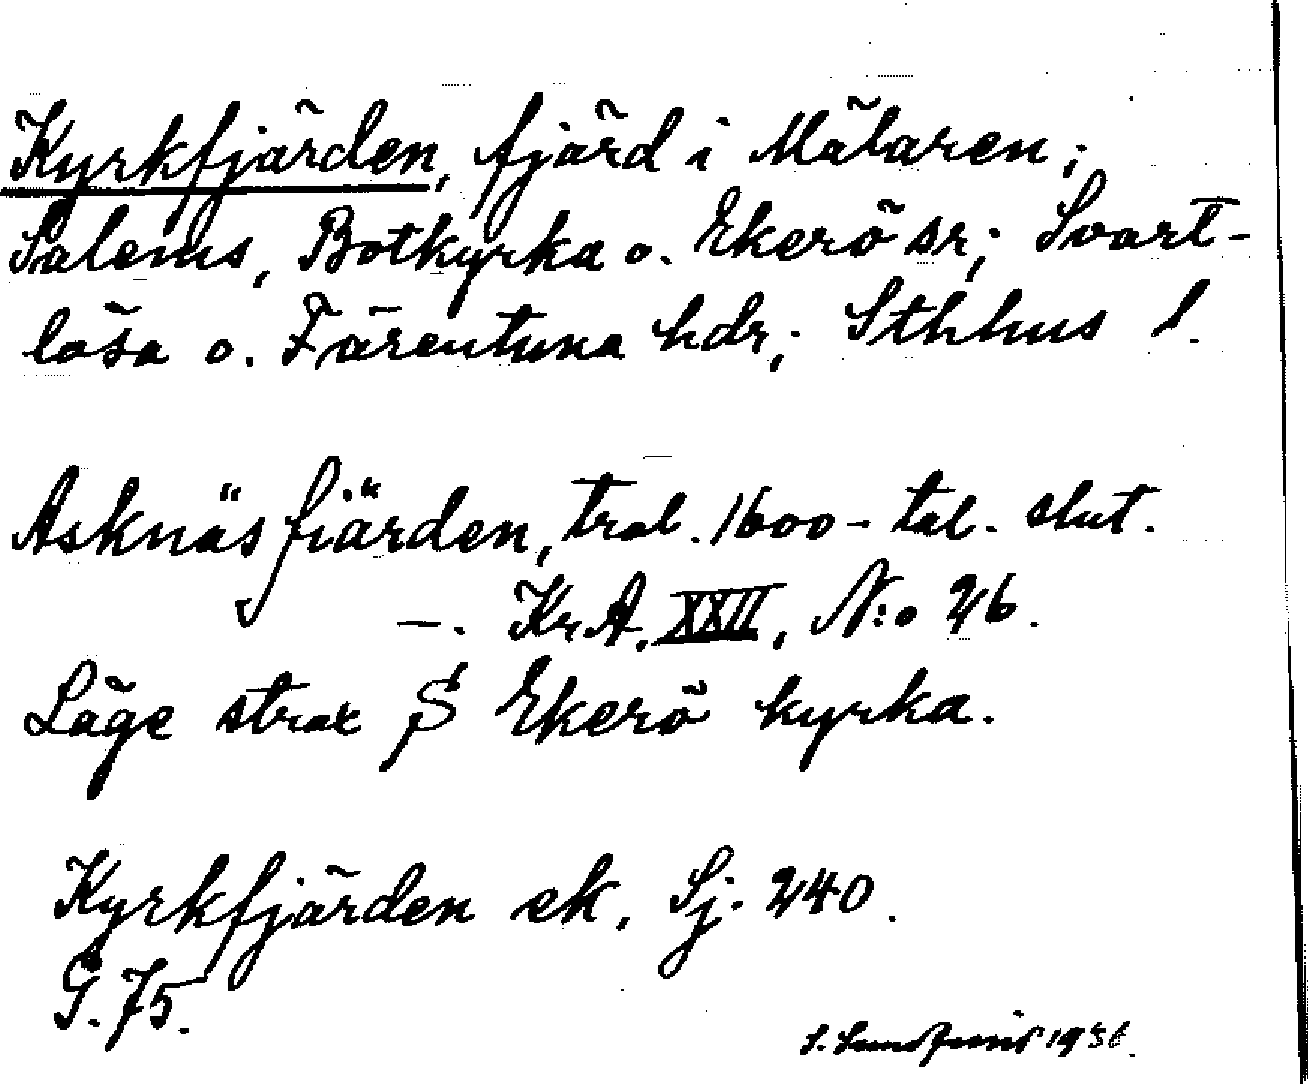 Kyrkfjärden, fjärd i Mälaren;
Salems, Botkyrka o. Ekerö sr; Svart-
lösa o. Färentuna hdr; Sthlms l.
Asknäsfiärden, trol. 1600-tal. slut.
—. KrA. XXII, N:o 26.
Läge strax S Ekerö kyrka.
Kyrkfjärden ek. Sj. 240.
G. 75.
S. 1936.